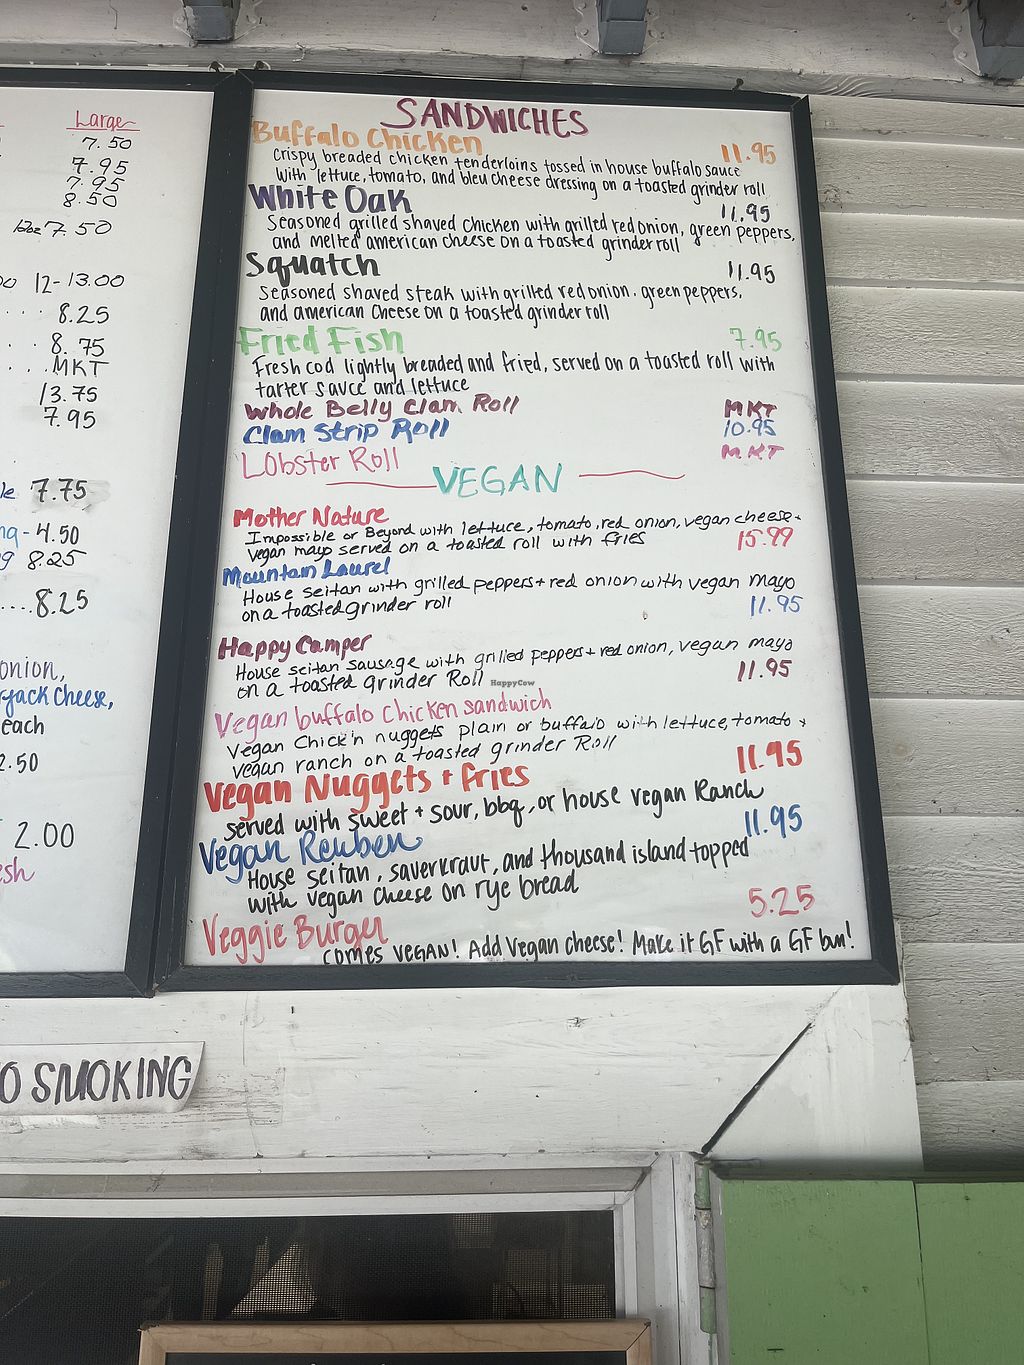 Large
7.50
7.95
7.95
8.50
12oz 7.50
12-13.00
8.25
8.75
MKT
13.75
7.95
7.75
4.50
8.25
8.25
onion,
rjack cheese,
each
2.50
2.00
esh
SANDWICHES
Buffalo Chicken 11.95
Crispy breaded chicken tenderloins tossed in house buffalo sauce
with lettuce, tomato, and bleu cheese dressing on a toasted grinder roll
White Oak 11.95
Seasoned grilled shaved chicken with grilled red onion, green peppers,
and melted american cheese on a toasted grinder roll
Squatch 11.95
Seasoned shaved steak with grilled red onion, green peppers,
and american cheese on a toasted grinder roll
Fried Fish 7.95
Fresh cod lightly breaded and fried, served on a toasted roll with
tarter sauce and lettuce
Whole Belly Clam Roll MKT
Clam Strip Roll 10.95
Lobster Roll MKT
VEGAN
Mother Nature
Impossible or Beyond with lettuce, tomato, red onion, vegan cheese +
vegan mayo served on a toasted roll with fries 15.99
Mountain Laurel
House seitan with grilled peppers + red onion with vegan mayo
on a toasted grinder roll 11.95
Happy Camper
House seitan sausage with grilled peppers + red onion, vegan mayo
on a toasted grinder Roll 11.95
HappyCow
Vegan buffalo chicken sandwich
Vegan Chick'n nuggets plain or buffalo with lettuce, tomato +
vegan ranch on a toasted grinder Roll 11.95
Vegan Nuggets + Fries
served with sweet + sour, bbq, or house vegan Ranch
Vegan Reuben 11.95
House seitan, saverkraut, and thousand island topped
with vegan cheese on rye bread
Veggie Burger 5.25
comes VEGAN! Add Vegan cheese! Make it GF with a GF bun!
O SMOKING